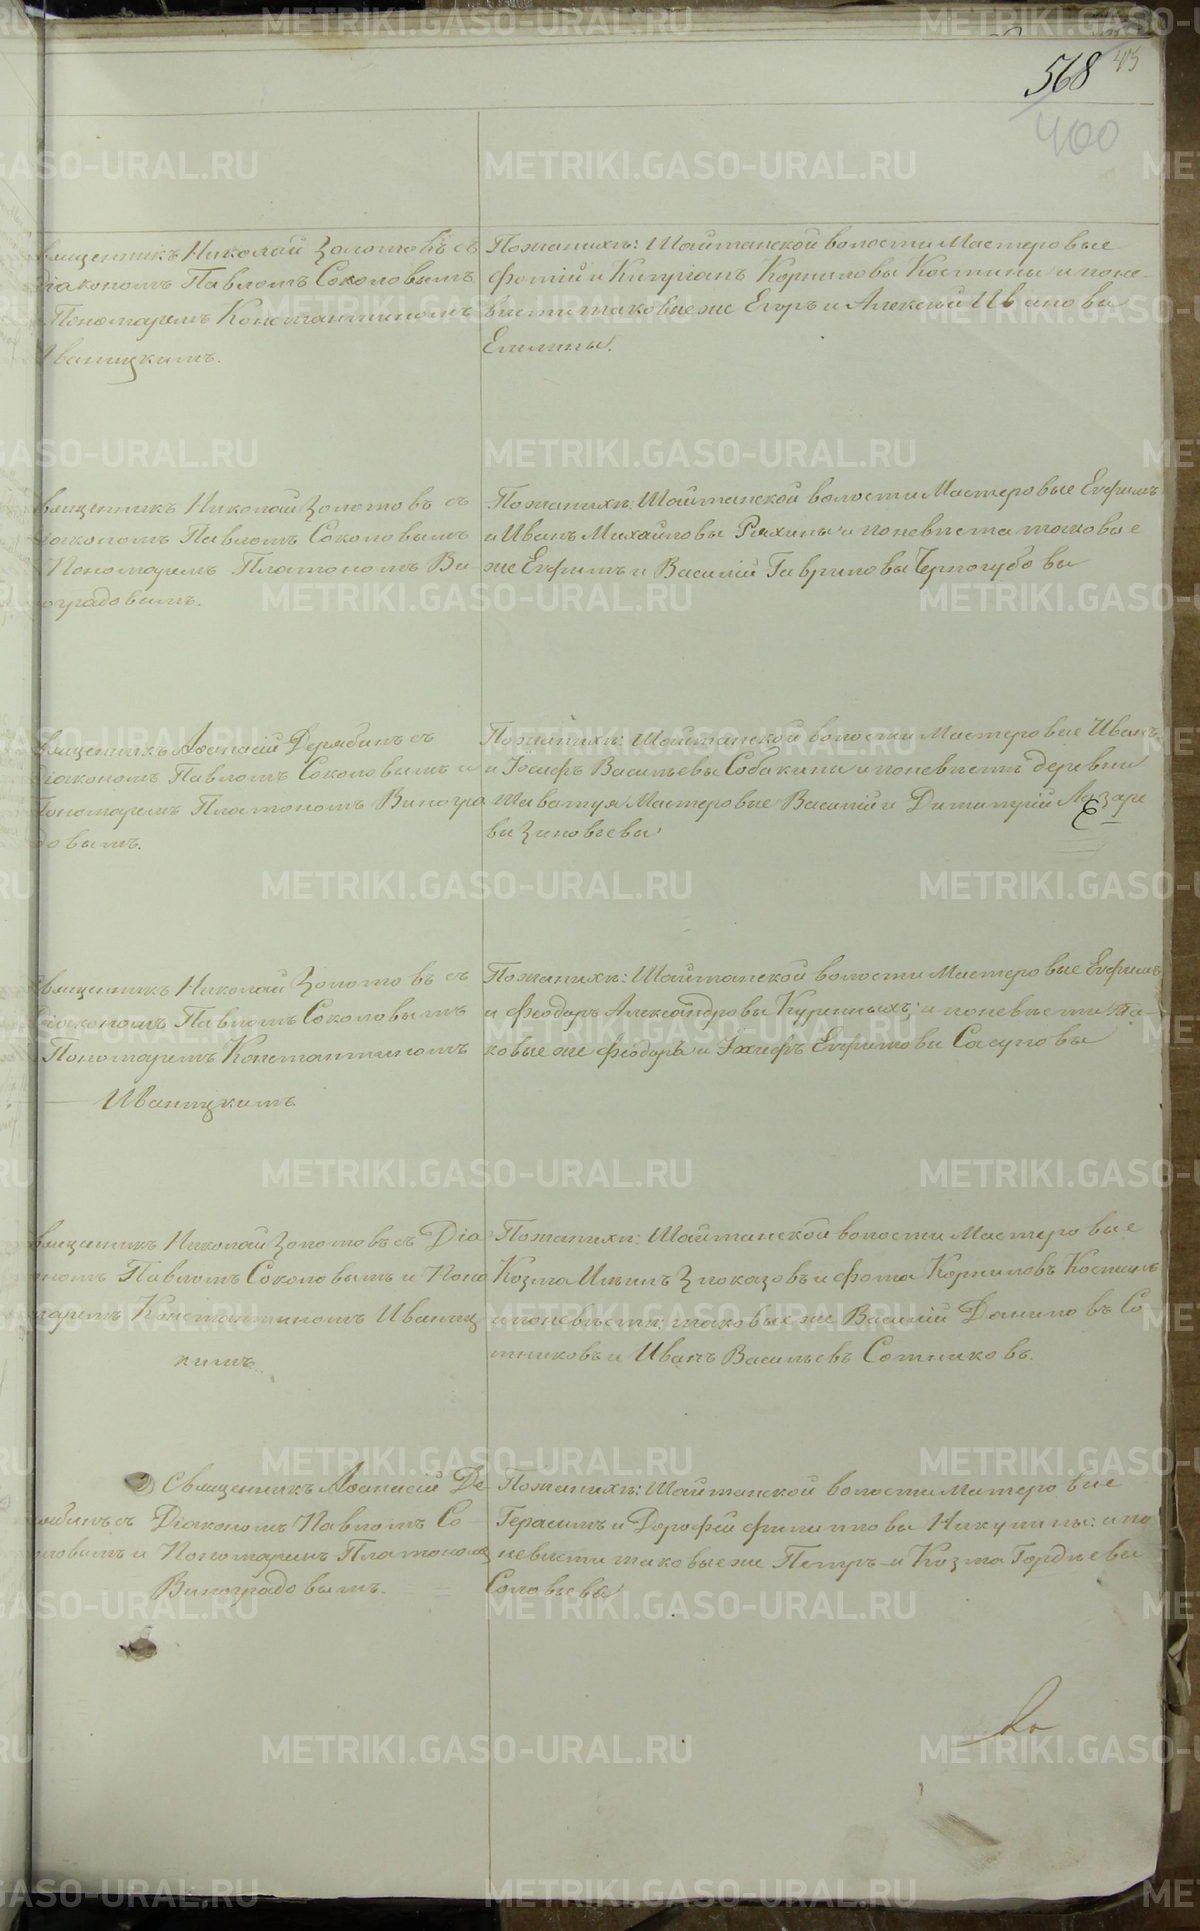 568 45
400
Священникъ Николай Золотовъ съ
Діакономъ Павломъ Соколовымъ
Пономаремъ Константиномъ
Иваницкимъ.
По женихѣ: Шайтанской волости Мастеровые
Фотій и Кипріанъ Корниловы Костины и по не-
вѣсти таковые же Егоръ и Алексѣй Ивановы
Емлины.
Священникъ Николай Золотовъ съ
Діакономъ Павломъ Соколовымъ
Пономаремъ Платономъ Ви-
ноградовымъ.
По женихѣ: Шайтанской волости Мастеровые Евфимъ
и Иванъ Михайловы Ряхины и по невѣстѣ таковые
же Евфимъ и Василій Гавриловы Черногубовы
Священникъ Аѳанасій Дерябинъ съ
Діакономъ Павломъ Соколовымъ и
Пономаремъ Платономъ Виногра
довымъ.
По женихѣ: Шайтанской волости Мастеровые Иванъ
и Іосифъ Васильевы Собакины и по невѣстѣ деревни
Мастеровые Василій и Димитрій Лазаре
вы Зиновьевы
Священникъ Николай Золотовъ съ
Діакономъ Павломъ Соколовымъ
Пономаремъ Константиномъ
Иваницкимъ
По женихѣ: Шайтанской волости Мастеровые Евфимъ
и Феодоръ Александровы Куренныхъ; и по невѣсти та-
ковые же Феодоръ и Евфимовы Сасуновы
Священникъ Николай Золотовъ съ Діа
кономъ Павломъ Соколовымъ и Поно
маремъ Константиномъ Иваниц
кимъ
По женихѣ: Шайтанской волости Мастеровые
Козма Ильинъ Злоказовъ и Фотій Корниловъ Костинъ
и по невѣсти: таковые же Василій Даниловъ Со
тниковъ и Иванъ Васильевъ Сотниковъ.
Священникъ Аѳанасій Де
рябинъ съ Діакономъ Павломъ Со
коловымъ и Пономаремъ Платономъ
Виноградовымъ.
По женихѣ: Шайтанской волости Мастеровые
Герасимъ и Дорофей Филипповы Никулины: и по
невѣсти таковые же Петръ и Козма Гордѣевы
Соловьевы
METRIKI.GASO-URAL.RU